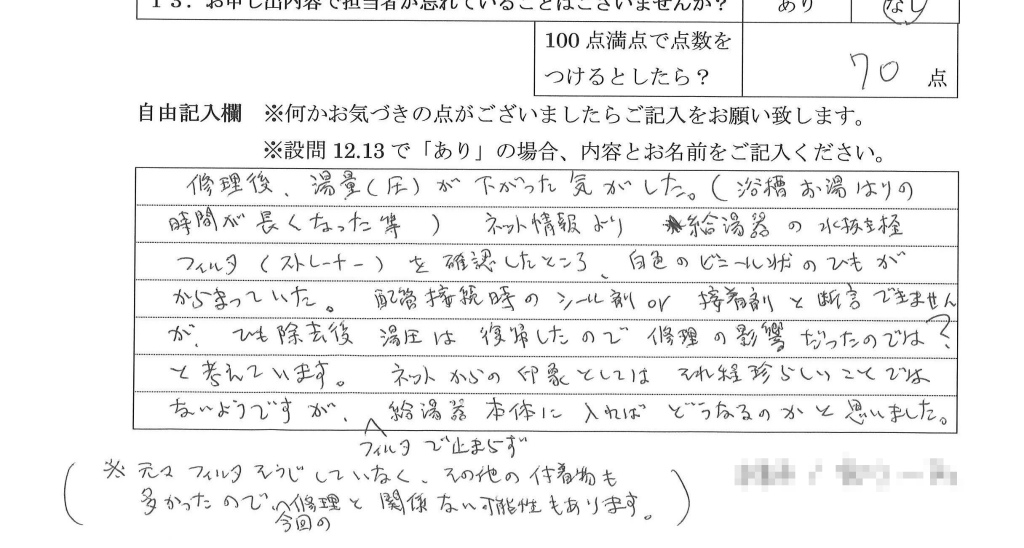 １３．お申し出内容で担当者が忘れていることはございませんか？ あり なし
100 点満点で点数を
つけるとしたら？ 70 点
自由記入欄 ※何かお気づきの点がございましたらご記入をお願い致します。
※設問 12.13 で「あり」の場合、内容とお名前をご記入ください。
修理後、湯量(圧)が下がった気がした。(浴槽お湯はりの
時間が長くなった等) ネット情報より 給湯器の水抜き栓
フィルタ(ストレーナー)を確認したところ、白色のビニール状のひもが
からまっていた。 配管接続時のシール剤 or 接着剤と断言できません
が、ひも除去後 湯圧は復帰したので修理の影響だったのでは？
と考えています。 ネットからの印象としては それ程珍らしいことでは
ないようですが、給湯器本体に入ればどうなるのかと思いました。
フィルタで止まらず
(※元々フィルタそうじしていなく、その他の付着物も
多かったので、修理と関係ない可能性もあります。)
今回の